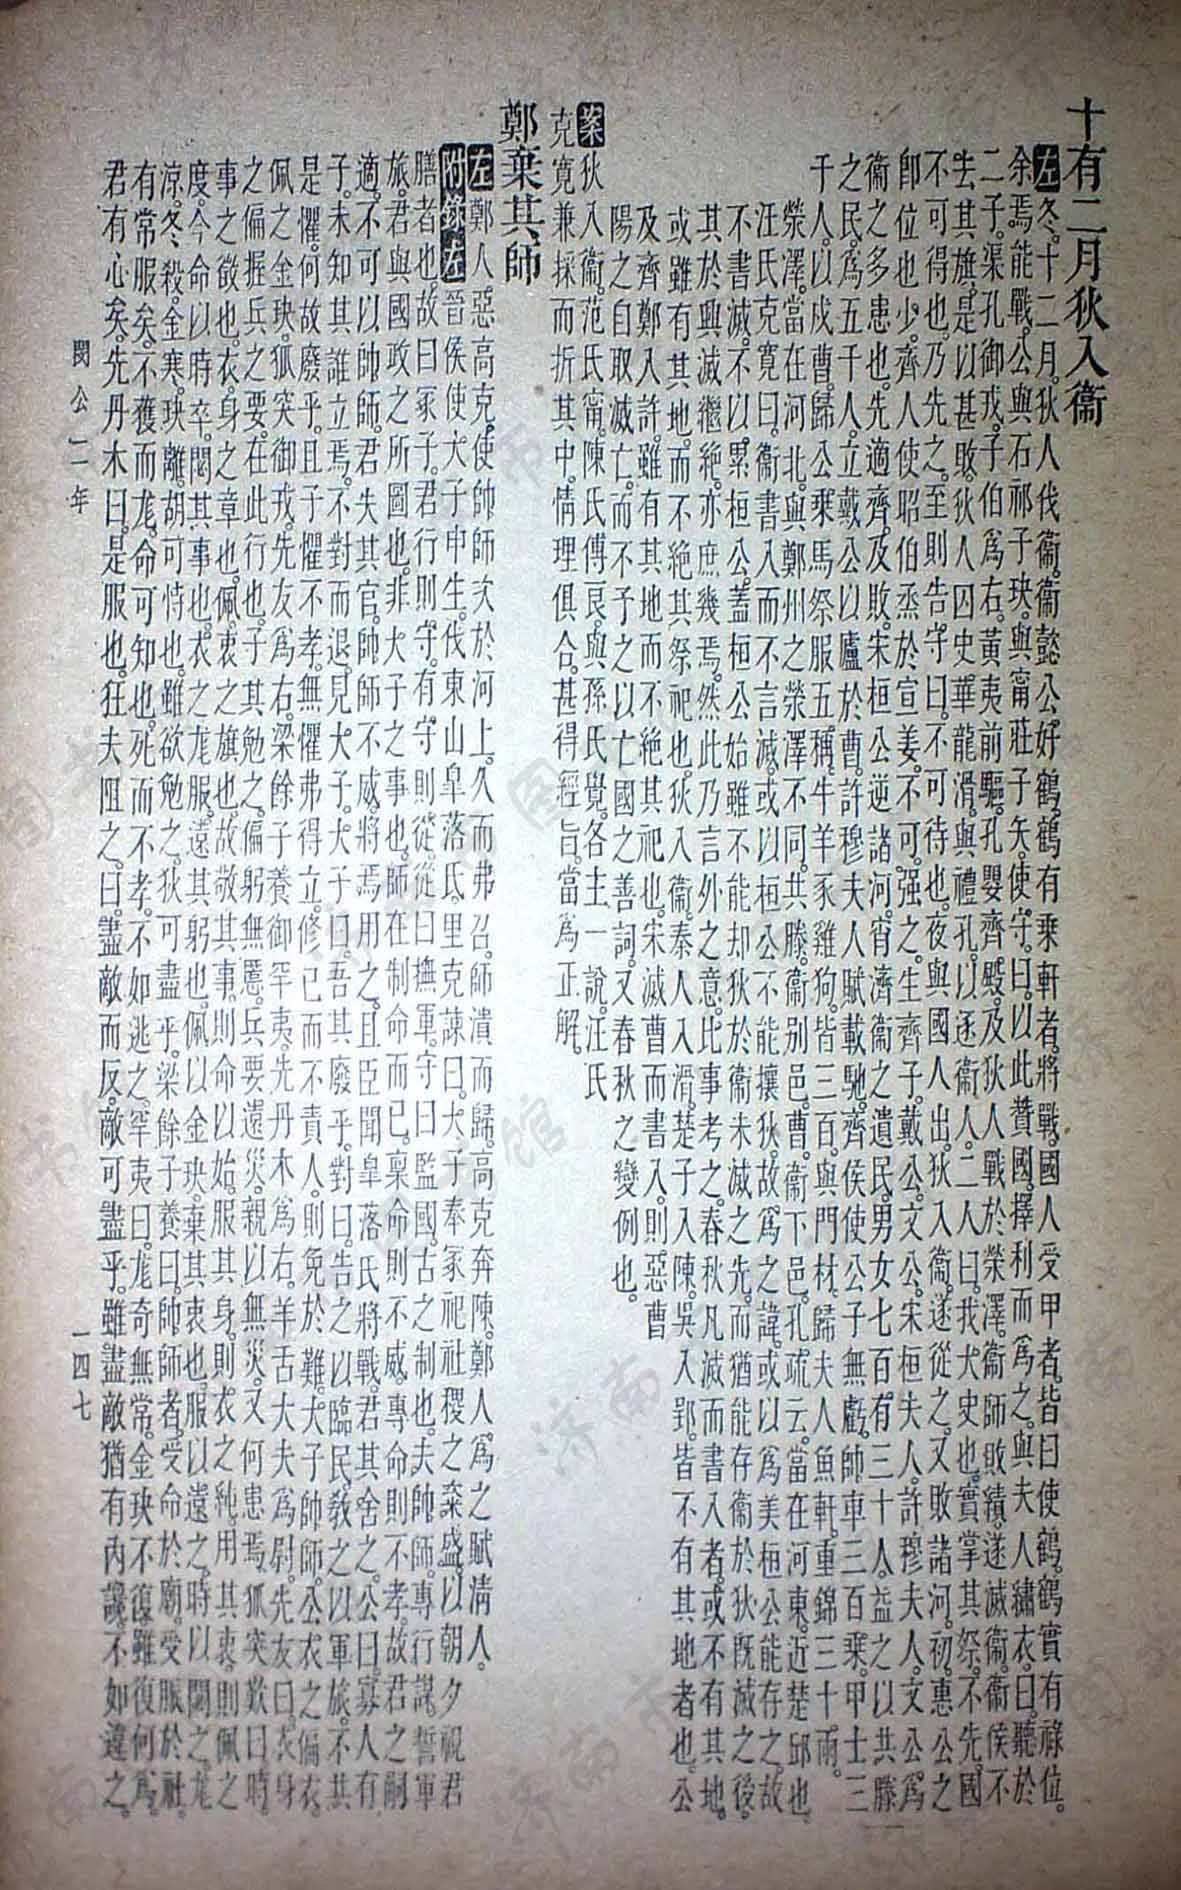 十有二月狄入衞
左冬。十二月。狄人伐衞。衞懿公好鶴。鶴有乘軒者。將戰。國人受甲者。皆曰使鶴。鶴實有祿位。
余焉能戰。公與石祁子玦。與甯莊子矢。使守。曰。以此贊國。擇利而爲之。與夫人繡衣。曰。聽於
二子。渠孔御戎。子伯爲右。黃夷前驅。孔嬰齊殿。及狄人戰於熒澤。衞師敗績。遂滅衞。衞侯不
去其旗。是以甚敗。狄人囚史華龍滑與禮孔。以逐衞人。二人曰。我大史也。實掌其祭。不先。國
不可得也。乃先之。至則告守曰。不可待也。夜與國人出。狄入衞。遂從之。又敗諸河。初。惠公之
卽位也少。齊人使昭伯烝於宣姜。不可。强之。生齊子。戴公。文公。宋桓夫人。許穆夫人。文公爲
衞之多患也。先適齊。及敗。宋桓公逆諸河。宵濟。衞之遺民。男女七百有三十人。益之以共滕
之民。爲五千人。立戴公以廬於曹。許穆夫人賦載馳。齊侯使公子無虧。帥車三百乘。甲士三
千人。以戍曹。歸公乘馬。祭服五稱。牛羊豕雞狗。皆三百。與門材。歸夫人魚軒。重錦三十兩。
熒澤。當在河北。與鄭州之滎澤不同。共滕。衞别邑。曹。衞下邑。孔疏云。當在河東。近楚邱也。
汪氏克寬曰。衞書入而不言滅。或以桓公不能攘狄。故爲之諱。或以爲美桓公能存之。故
不書滅。不以累桓公。蓋桓公始雖不能却狄於衞未滅之先。而猶能存衞於狄旣滅之後。
其於興滅繼絶。亦庶幾焉。然此乃言外之意。比事考之。春秋凡滅而書入者。或不有其地。
或雖有其地。而不絶其祭祀也。狄入衞。秦人入滑。楚子入陳。吳入郢。皆不有其地者也。公
及齊鄭入許。雖有其地而不絶其祀也。宋滅曹而書入。則惡曹
陽之自取滅亡。而不予之以亡國之善詞。又春秋之變例也。
案狄入衞。范氏甯。陳氏傅良。與孫氏覺。各主一說。汪氏
克寬兼採而折其中。情理俱合。甚得經旨。當爲正解。
鄭棄其師
左鄭人惡高克。使帥師次於河上。久而弗召。師潰而歸。高克奔陳。鄭人爲之賦清人。
附錄左晉侯使大子申生。伐東山皐落氏。里克諫曰。大子奉冢祀社稷之粢盛。以朝夕視君
膳者也。故曰冢子。君行則守。有守則從。從曰撫軍。守曰監國。古之制也。夫帥師。專行謀。誓軍
旅。君與國政之所圖也。非大子之事也。師在制命而已。稟命則不威。專命則不孝。故君之嗣
適。不可以帥師。君失其官。帥師不威。將焉用之。且臣聞皐落氏將戰。君其舍之。公曰。寡人有
子。未知其誰立焉。不對而退。見大子。大子曰。吾其廢乎。對曰。告之以臨民。敎之以軍旅。不共
是懼。何故廢乎。且子懼不孝。無懼弗得立。修己而不責人。則免於難。大子帥師。公衣之偏衣。
佩之金玦。狐突御戎。先友爲右。梁餘子養御罕夷。先丹木爲右。羊舌大夫爲尉。先友曰。衣身
之偏。握兵之要。在此行也。子其勉之。偏躬無慝。兵要遠災。親以無災。又何患焉。狐突歎曰。時。
事之徵也。衣。身之章也。佩。衷之旗也。故敬其事。則命以始。服其身。則衣之純。用其衷。則佩之
度。今命以時卒。閟其事也。衣之尨服。遠其躬也。佩以金玦。棄其衷也。服以遠之。時以閟之。尨
涼。冬殺。金寒。玦離。胡可恃也。雖欲勉之。狄可盡乎。梁餘子養曰。帥師者。受命於廟。受脤於社。
有常服矣。不獲而尨。命可知也。死而不孝。不如逃之。罕夷曰。尨奇無常。金玦不復。雖復何爲。
君有心矣。先丹木曰。是服也。狂夫阻之。曰。盡敵而反。敵可盡乎。雖盡敵猶有內讒。不如違之。
閔公二年
一四七